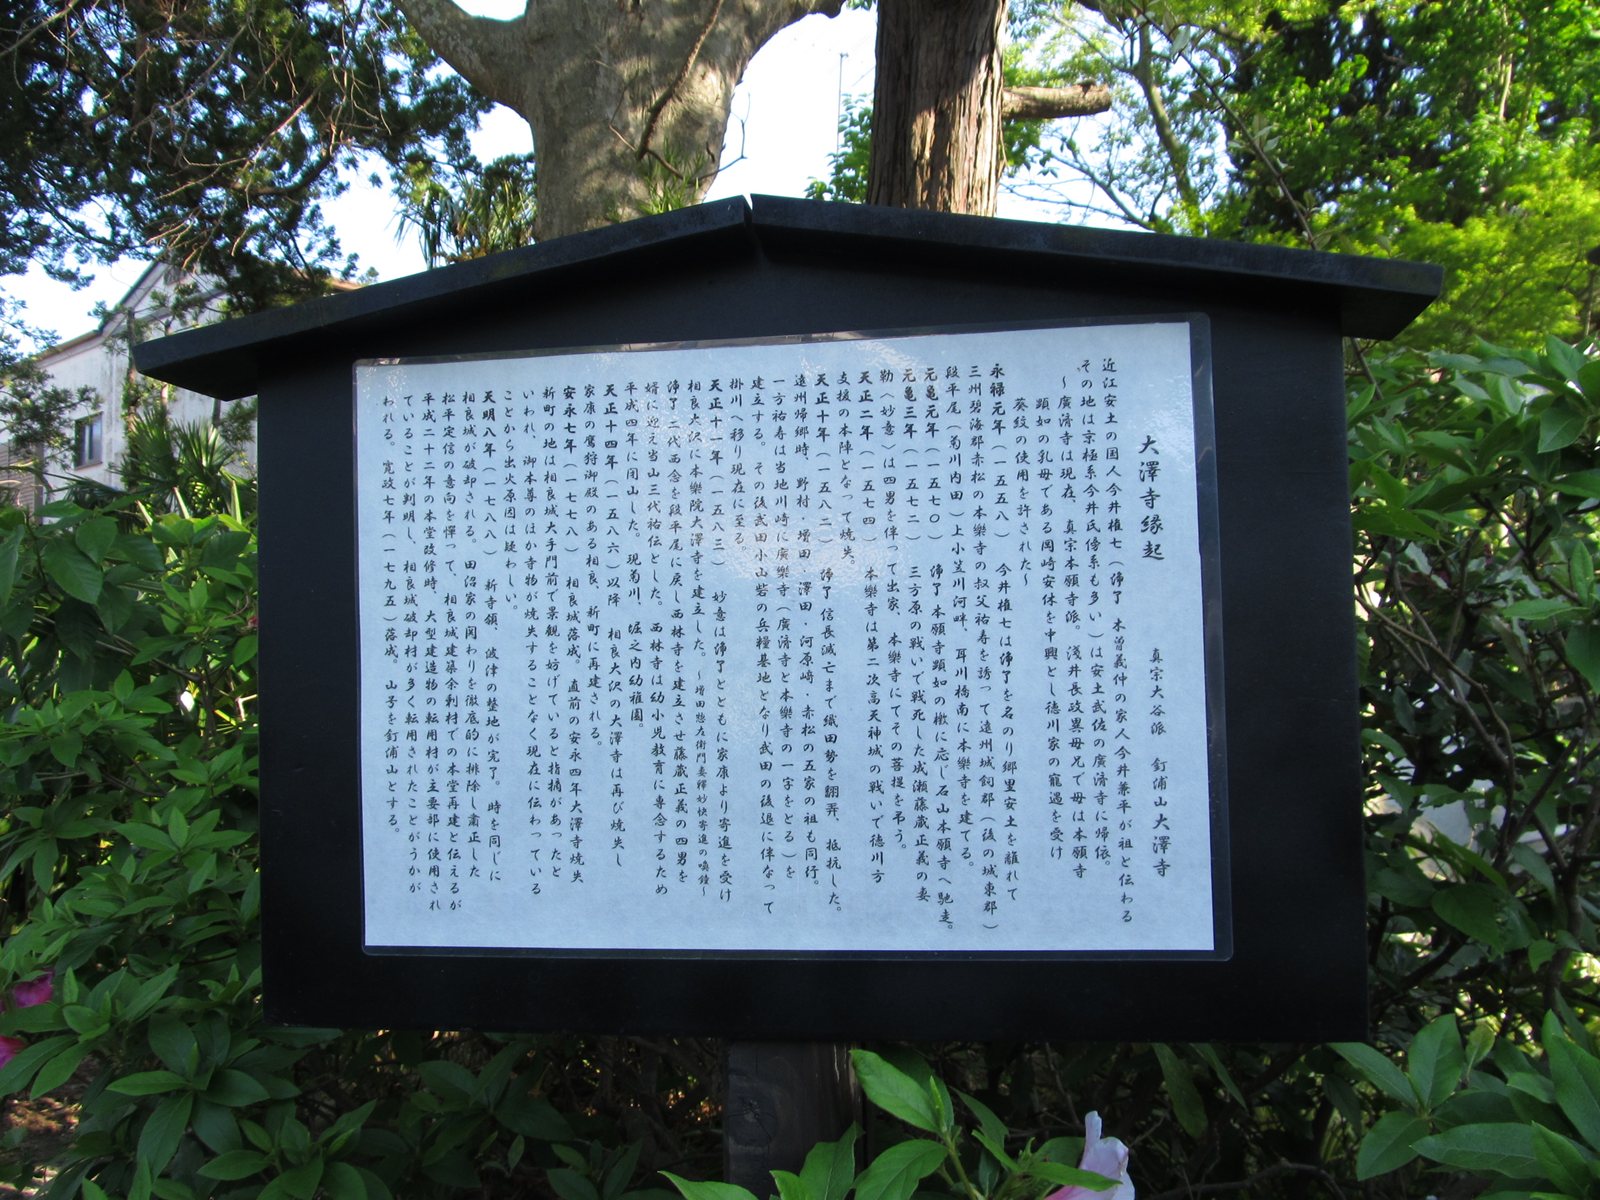 大澤寺縁起
真宗大谷派 釘浦山大澤寺
近江安土の国人今井権七（浄了 木曽義仲の家人今井兼平が祖と伝わる
その地は京極系今井氏傍系も多い）は安土武佐の廣済寺に帰依。
～廣済寺は現在、真宗本願寺派。浅井長政異母兄で母は本願寺
顕如の乳母である岡崎安休を中興とし徳川家の寵遇を受け
葵紋の使用を許された～
永禄元年（一五五八） 今井権七は浄了を名のり郷里安土を離れて
三州碧海郡赤松の本樂寺の叔父祐寿を誘って遠州城飼郡（後の城東郡）
段平尾（菊川内田）上小笠川河畔、耳川橋南に本樂寺を建てる。
元亀元年（一五七〇） 浄了 本願寺顕如の檄に応じ石山本願寺へ馳走。
元亀三年（一五七二） 三方原の戦いで戦死した成瀬藤蔵正義の妻
勒（妙意）は四男を伴って出家、本樂寺にてその菩提を弔う。
天正二年（一五七四） 本樂寺は第二次高天神城の戦いで徳川方
支援の本陣となって焼失。
天正十年（一五八二） 浄了 信長滅亡まで織田勢を翻弄、抵抗した。
遠州帰郷時、野村・増田・澤田・河原﨑・赤松の五家の祖も同行。
一方祐寿は当地川崎に廣樂寺（廣済寺と本樂寺の一字をとる）を
建立する。その後武田小山砦の兵糧基地となり武田の後退に伴なって
掛川へ移り現在に至る。
天正十一年（一五八三） 妙意は浄了とともに家康より寄進を受け
相良大沢に本樂院大澤寺を建立した。～増田惣左衛門妻釋妙快寄進の喚鐘～
浄了 二代西念を段平尾に戻し西林寺を建立させ藤蔵正義の四男を
婿に迎え当山三代祐伝とした。西林寺は幼小児教育に専念するため
平成四年に閉山した。現菊川、堀之内幼稚園。
天正十四年（一五八六）以降 相良大沢の大澤寺は再び焼失し
家康の鷹狩御殿のある相良、新町に再建される。
安永七年（一七七八） 相良城落成。直前の安永四年大澤寺焼失
新町の地は相良城大手門前で景観を妨げていると指摘があったと
いわれ、御本尊のほか寺物が焼失することなく現在に伝わっている
ことから出火原因は疑わしい。
天明八年（一七八八） 新寺領、波津の整地が完了。時を同じに
相良城が破却される。田沼家の関わりを徹底的に排除し粛正した
松平定信の意向を憚って、相良城建築余剰材での本堂再建と伝えるが
平成二十二年の本堂改修時、大型建造物の転用材が主要部に使用され
ていることが判明し、相良城破却材が多く転用されたことがうかが
われる。寛政七年（一七九五）落成。山号を釘浦山とする。